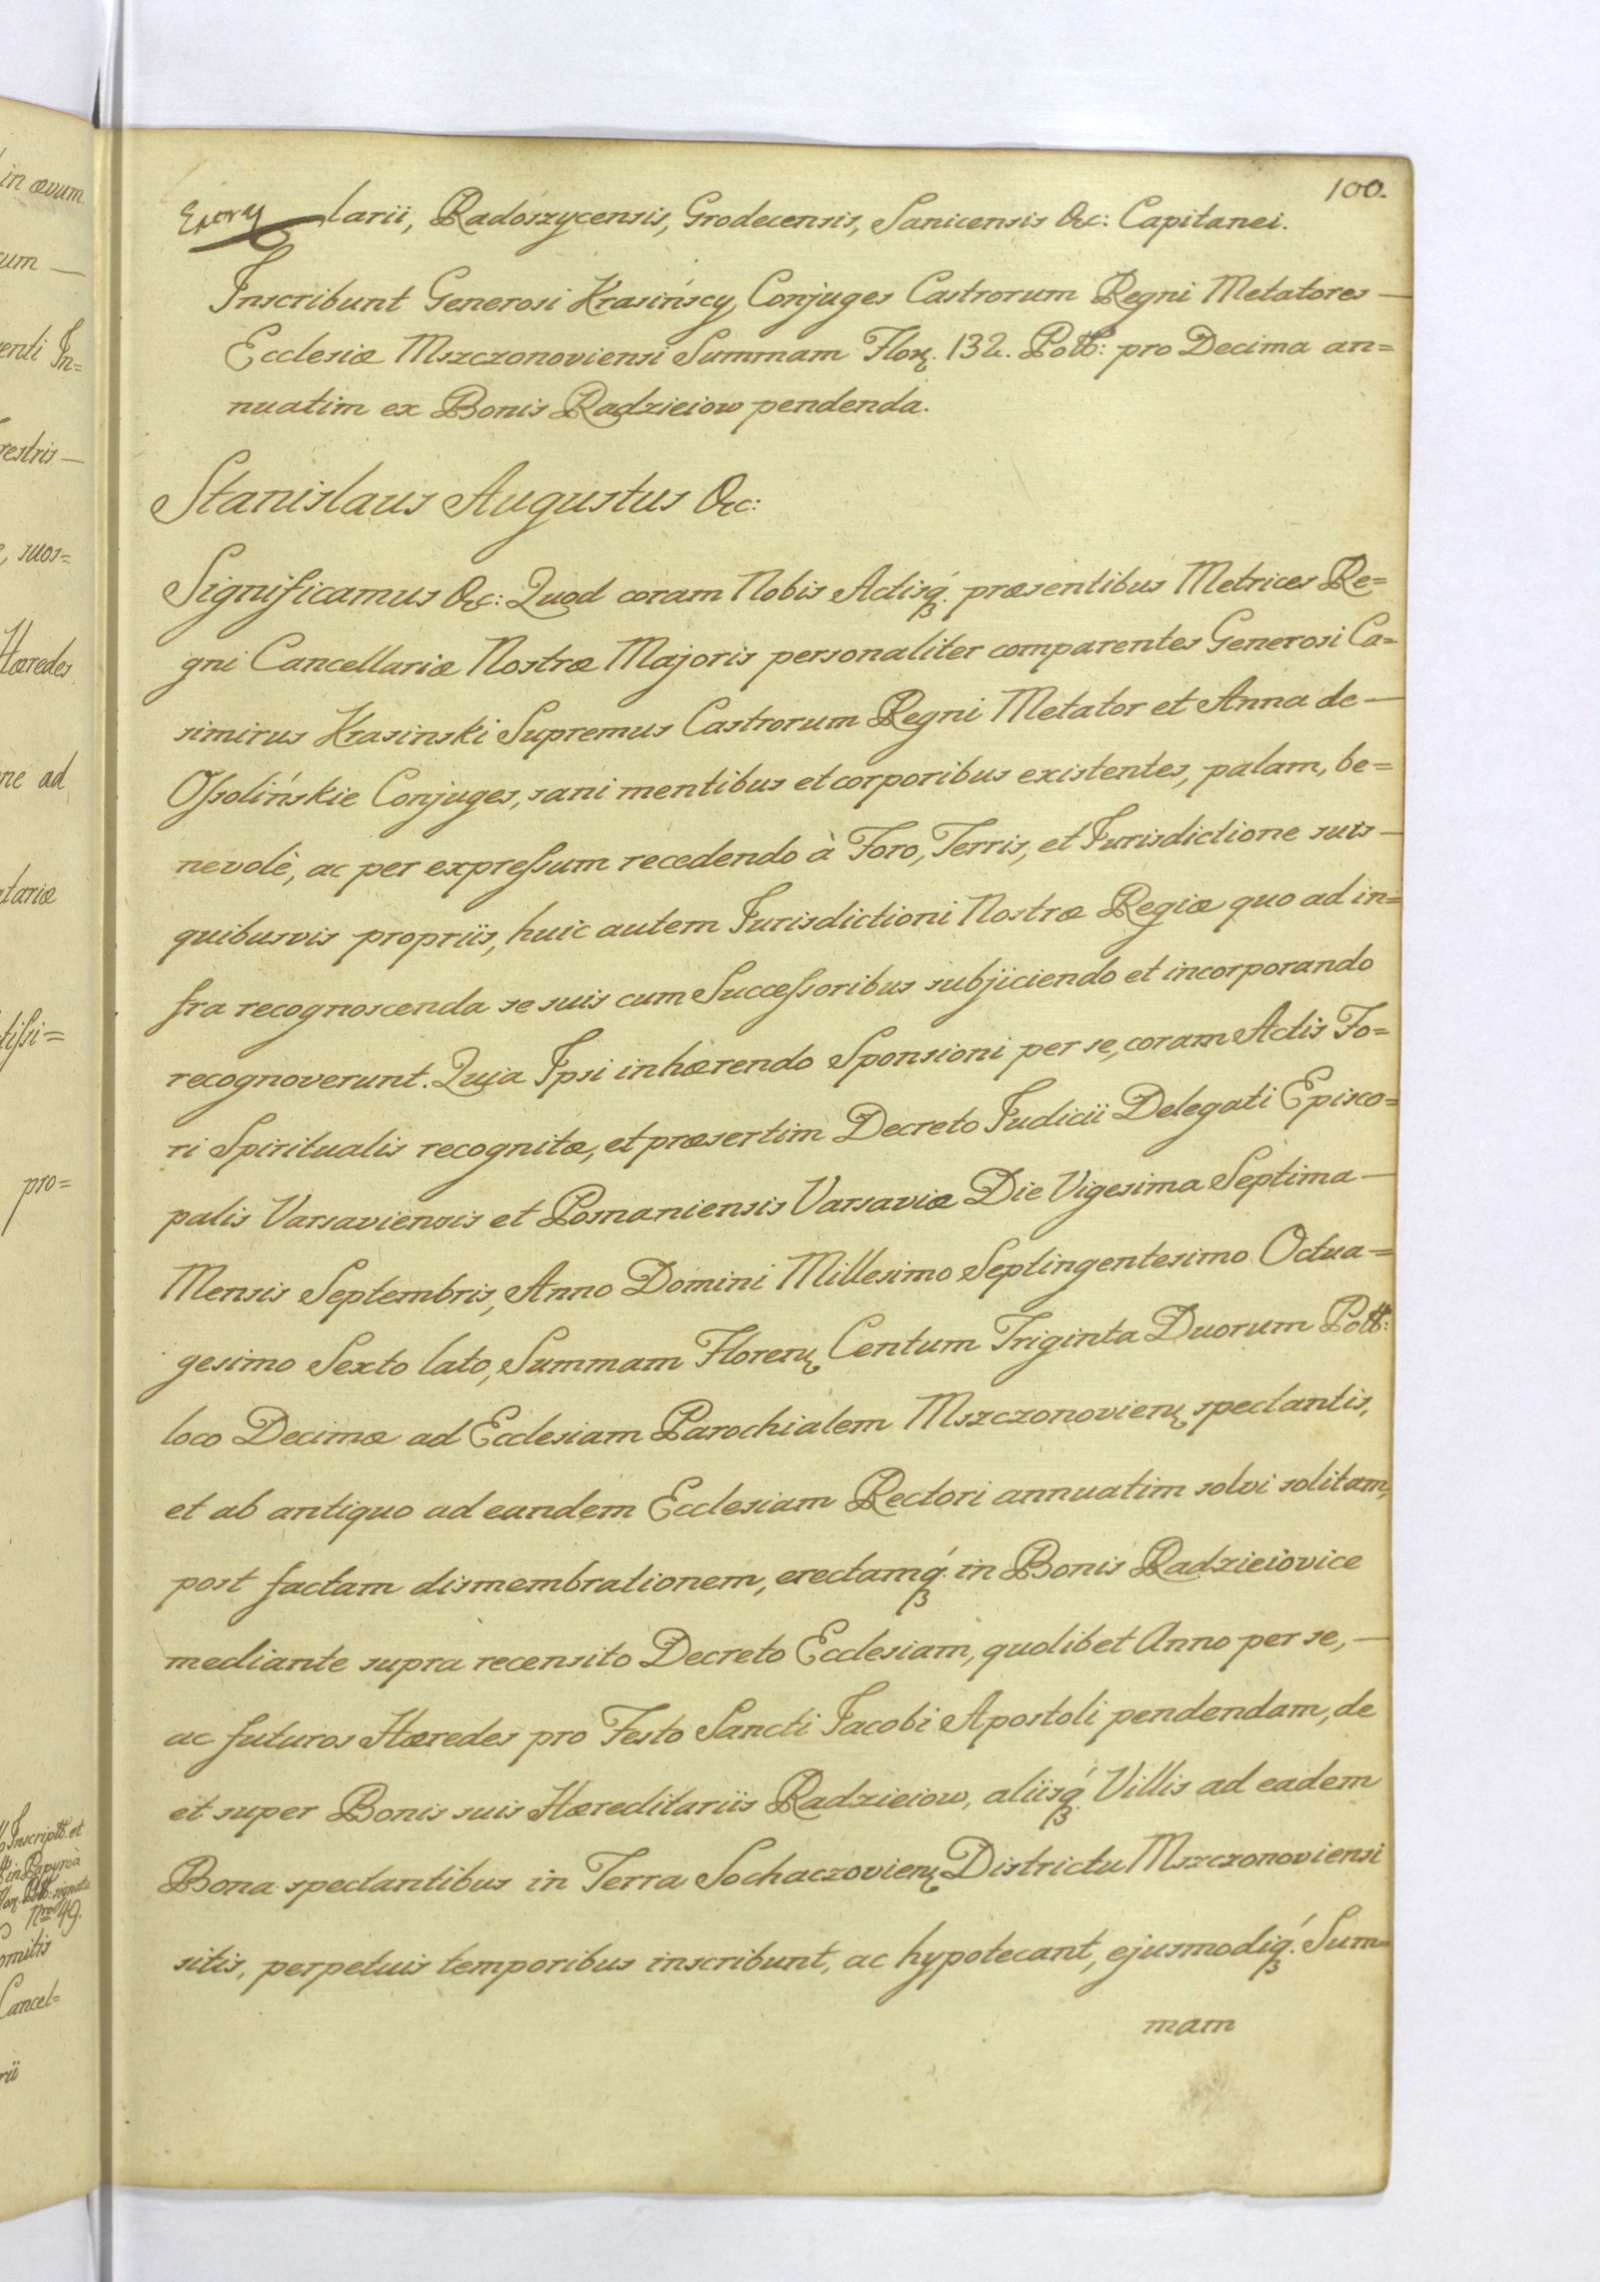 100.
larii, Radoszycensis, Grodecensis, Sanicensis &c: Capitanei.
Inscribunt Generosi Krasińscy Conjuges Castrorum Regni Metatores —
Ecclesiæ Mszczonoviensi Summam Flor. 132. Poll: pro Decima an=
nuatim ex Bonis Radzieiow pendenda.
Stanislaus Augustus &c:
Significamus &c: Quod coram Nobis Actisq́. præsentibus Metrices Re=
gni Cancellariæ Nostræ Majoris personaliter comparentes Generosi Ca=
simirus Krasinski Supremus Castrorum Regni Metator et Anna de —
Ossolińskie Conjuges, sani mentibus et corporibus existentes, palam, be=
nevolè, ac per expressum recedendo à Foro, Terris, et Jurisdictione suis —
quibusvis propriis, huic autem Jurisdictioni Nostræ Regiæ quo ad in=
fra recognoscenda se suis cum Successoribus subjiciendo et incorporando
recognoverunt. Quia Ipsi inhærendo Sponsioni per se, coram Actis Fo=
ri Spiritualis recognitæ, et præsertim Decreto Judicii Delegati Episco=
palis Varsaviensis et Posnaniensis Varsaviæ Die Vigesima Septima —
Mensis Septembris, Anno Domini Millesimo Septingentesimo Octua=
gesimo Sexto lato, Summam Floren. Centum Triginta Duorum Poll:
loco Decimæ ad Ecclesiam Parochialem Mszczonovien. spectantis,
et ab antiquo ad eandem Ecclesiam Rectori annuatim solvi solitam,
post factam dismembrationem, erectamq́. in Bonis Radzieiovice
mediante supra recensito Decreto Ecclesiam, quolibet Anno per se, —
ac futuros Hæredes pro Festo Sancti Jacobi Apostoli pendendam, de
et super Bonis suis Hæreditariis Radzieiow, aliisq́. Villis ad eadem
Bona spectantibus in Terra Sochaczovien. Districtu Mszczonoviensi
sitis, perpetuis temporibus inscribunt, ac hypotecant, ejusmodiq́. Sum=
mam
in ævum
um —
enti In=
restris —
, suos=
Hæredes
ne ad
lariæ
tissi=
pro=
Inscript. et
in Papyro à
signata
Nro 49.
omitis
Cancel=
rii